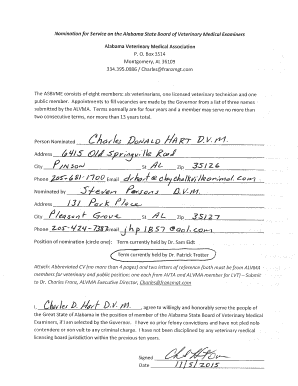 Nomination for Service on the Alabama State Board of Veterinary Medical Examiners
Alabama Veterinary Medical Association
P. O. Box 3514
Montgomery, Al 36109
334.395.0086 / Charles@franzmgt.com
The ASBVME consists of eight members: six veterinarians, one licensed veterinary technician and one
public member. Appointments to fill vacancies are made by the Governor from a list of three names
submitted by the ALVMA. Terms normally are for four years and a member may serve no more than
two consecutive terms, nor more than 13 years total.
Person Nominated Charles DONALD HART D.V.M.
Address 6415 Old Springville Road
City PINSON St AL Zip 35126
Phone 205-681-1700 Email
Nominated by Steven Parsons D.V.M.
Address 131 Park Place
City Pleasant Grove St AL Zip 35127
Phone 205-424-7387 Email jhp1857@aol.com
Position of nomination (circle one): Term currently held by Dr. Sam Eidt
Term currently held by Dr. Patrick Trotter
Attach: Abbreviated CV (no more than 4 pages) and two letters of reference (both must be from ALVMA members
for veterinary and public position; one each from AVTA and ALVMA member for LVT) – Submit
to Dr. Charles Franz, ALVMA Executive Director, Charles@franzmgt.com
I, Charles D. Hart D.V.M., agree to willingly and honorably serve the people of
the Great State of Alabama in the position of member of the Alabama State Board of Veterinary Medical
Examiners, if I am selected by the Governor. I have no prior felony convictions and have not pled nolo
contendere or non vult to any criminal charge. I have not been disciplined by any veterinary medical
licensing board jurisdiction within the previous ten years.
Signed
Date 11/5/2015